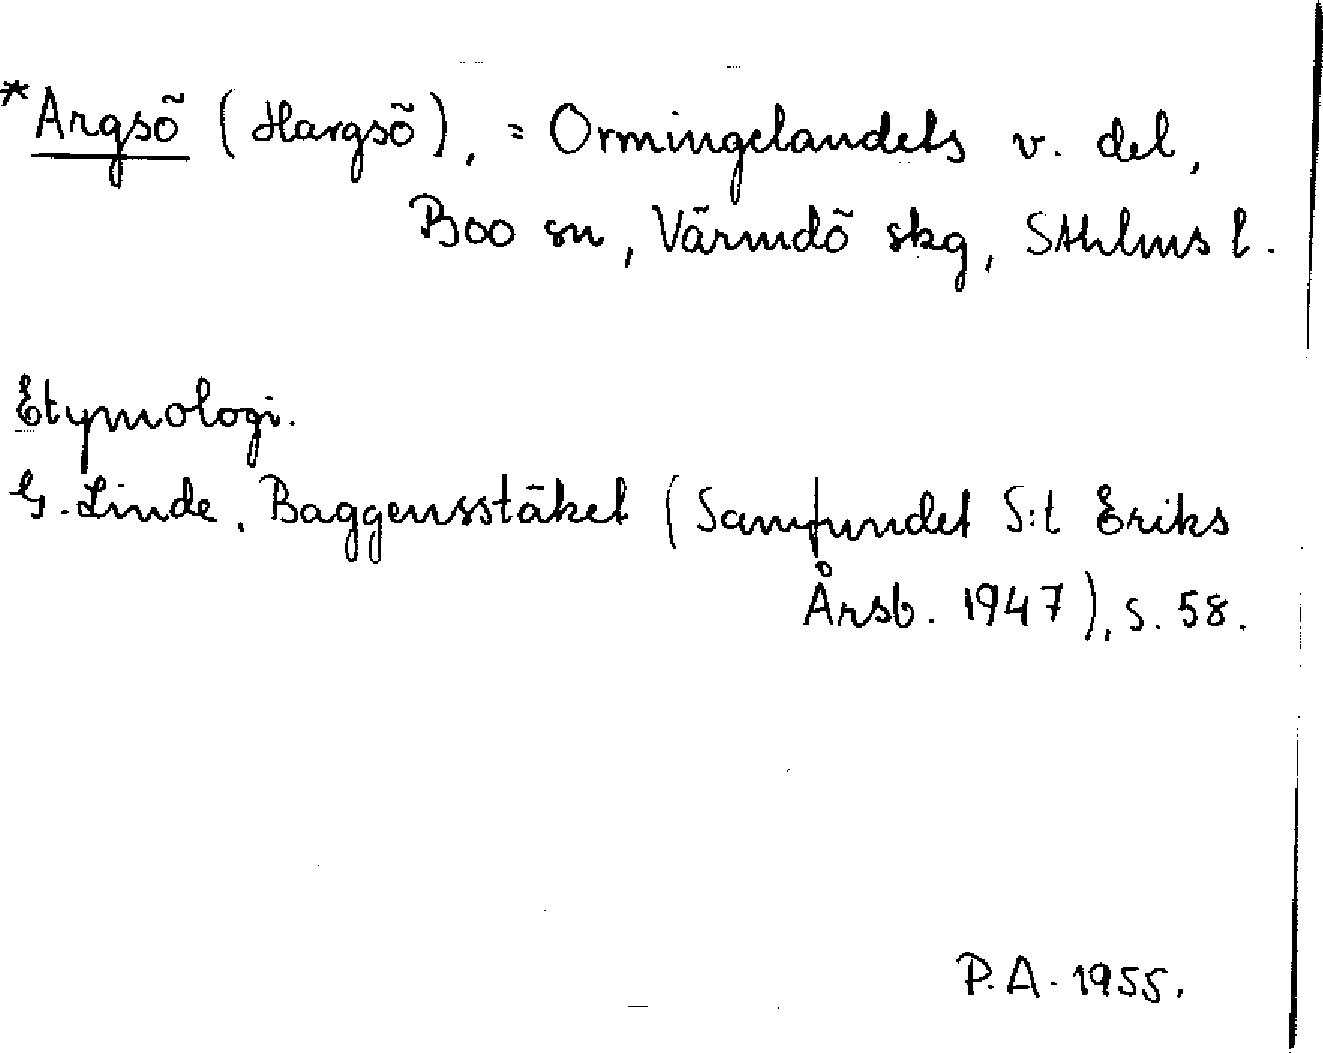 *Argsö (Hargsö), = Ormingelandets v. del,
Boo sn, Värmdö skg, Sthlms l.
Etymologi.
G. Linde, Baggensstäket (Samfundet S:t Eriks
Årsb. 1947), s. 58.
P.A. 1955.